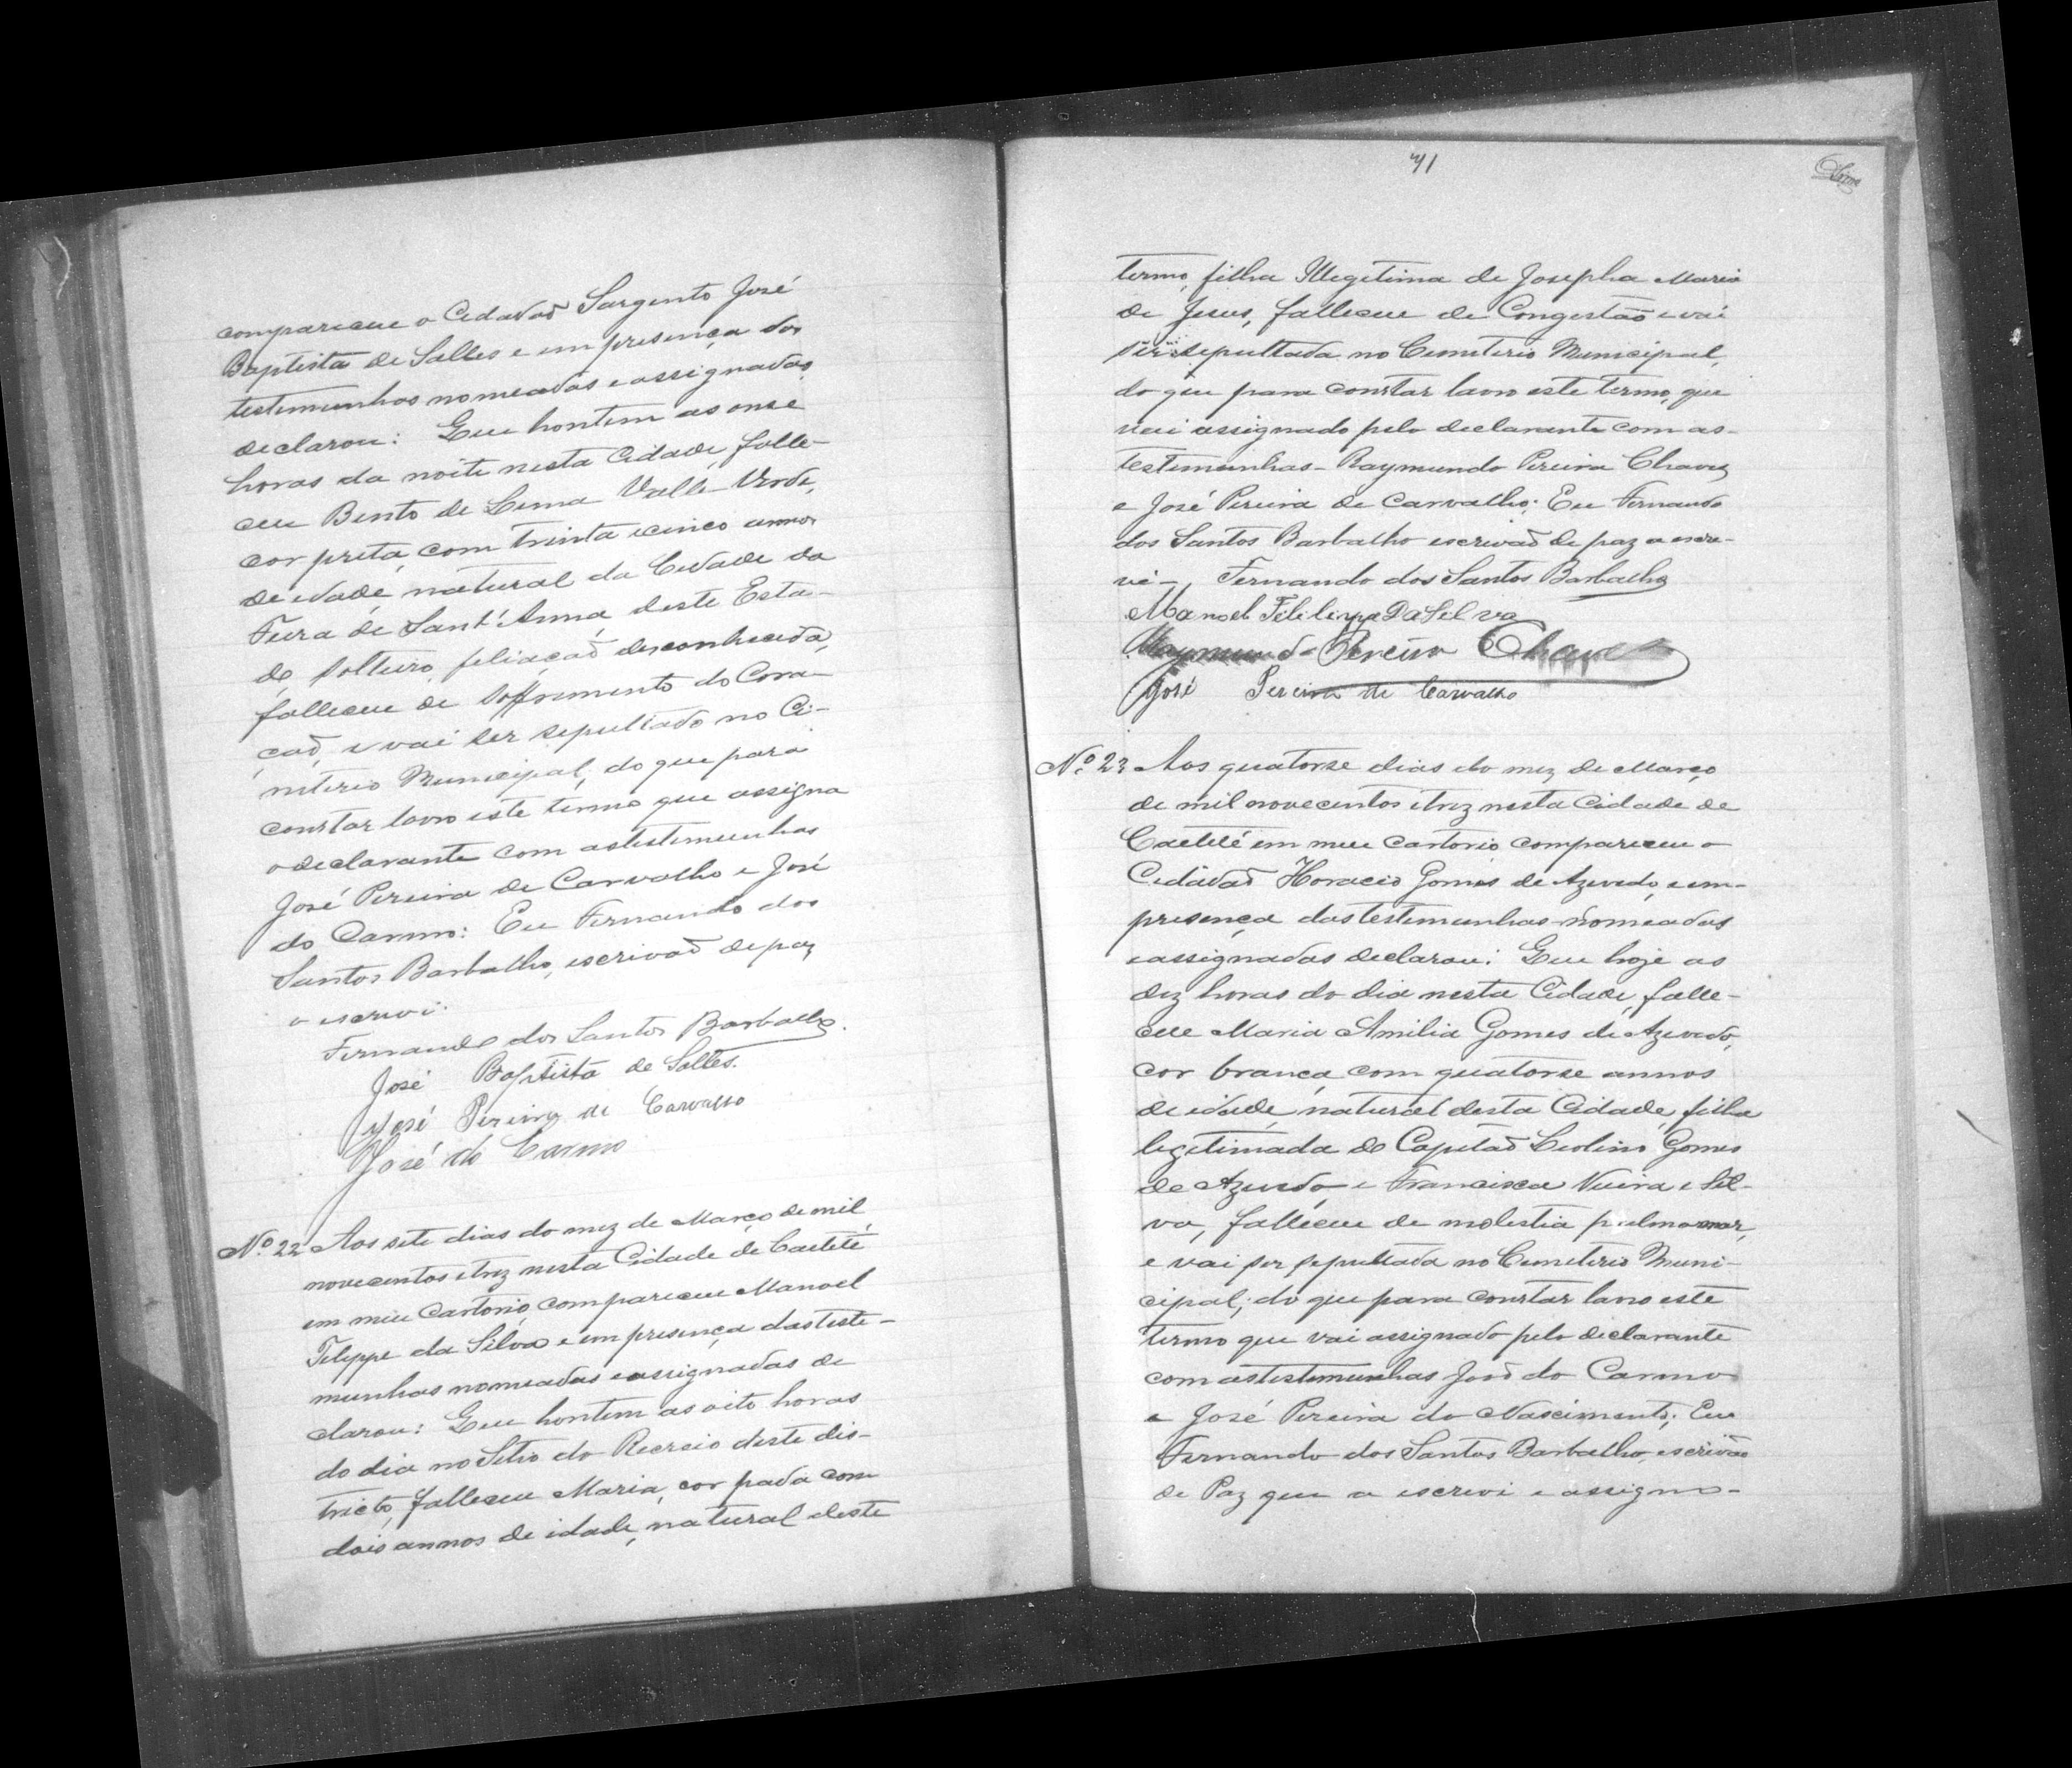 compareceu o Cidadaõ Sargento José
Baptista de Salles e em presença das
testemunhas nomeadas e assignadas,
declarou: Que hontem as onse
horas da noite nesta Cidade, falle-
ceu Bento de Lima Valle Verde,
cor preta, com trinta e cinco annos
de idade, natural da Cidade da
Feira de Sant'Anna, deste Esta-
do, solteiro, filiaçaõ desconhecida,
falleceu de soffrimento do Cora-
çaõ, e vai ser sepultado no Ci-
miterio Municipal; do que para
constar lavro este termo que assigna
o declarante com as testemunhas
José Pereira de Carvalho e José
do Carmo: Eu Fernando dos
Santos Barbalho, escrivaõ de paz
o escrevi.
Fernando dos Santos Barbalho.
José Baptista de Salles.
José Pereira de Carvalho
José do Carmo
Nº 22 Aos sete dias do mez de Março de mil
novecentos e trez nesta Cidade de Caeteté
em meu Cartorio, compareceu Manoel
Felippe da Silva e em presença das teste-
munhas nomeadas e assignadas de
clarou: Que hontem as oito horas
do dia no Sitio do Recreio deste dis-
tricto, falleceu Maria, cor pada com
dois annos de idade, natural deste
41
termo, filha Illegitima de Josepha Maria
de Jesus, falleceu de Congestaõ e vai
ser sepultada no Cemiterio Municipal,
do que para constar lavro este termo, que
vai assignado pelo declarante com as-
testemunhas - Raymundo Pereira Chaves
e José Pereira de Carvalho; Eu Fernando
dos Santos Barbalho escrivaõ de paz o escre-
vi - Fernando dos Santos Barbalho
Manoel Felilippe Da Sil va
Raymundo Pereira Chaves
José Pereira de Carvalho
Nº 23 Aos quatorse dias do mez de Março
de mil novecentos e trez nesta Cidade de
Caeteté em meu Cartorio compareceu o
Cidadaõ Horacio Gomes de Azevedo, e em-
presença das testemunhas nomeadas
e assignadas declarou: Que hoje as
dez horas do dia nesta Cidade, falle-
ceu Maria Amilia Gomes de Azevedo,
cor branca, com quatorse annos
de idade, natural desta Cidade, filha
legitimada do Capitaõ Leolino Gomes
de Azevedo e Francisca Vieira e Sil-
va, falleceu de molestia pulmonar,
e vai ser sepultada no Cemiterio Muni-
cipal; do que para constar lavro este
termo que vai assignado pelo declarante
com as testemunhas José do Carmo
e José Pereira do Nascimento; Eu
Fernando dos Santos Barbalho, escrivão
de Paz que o escrevi e assigno-